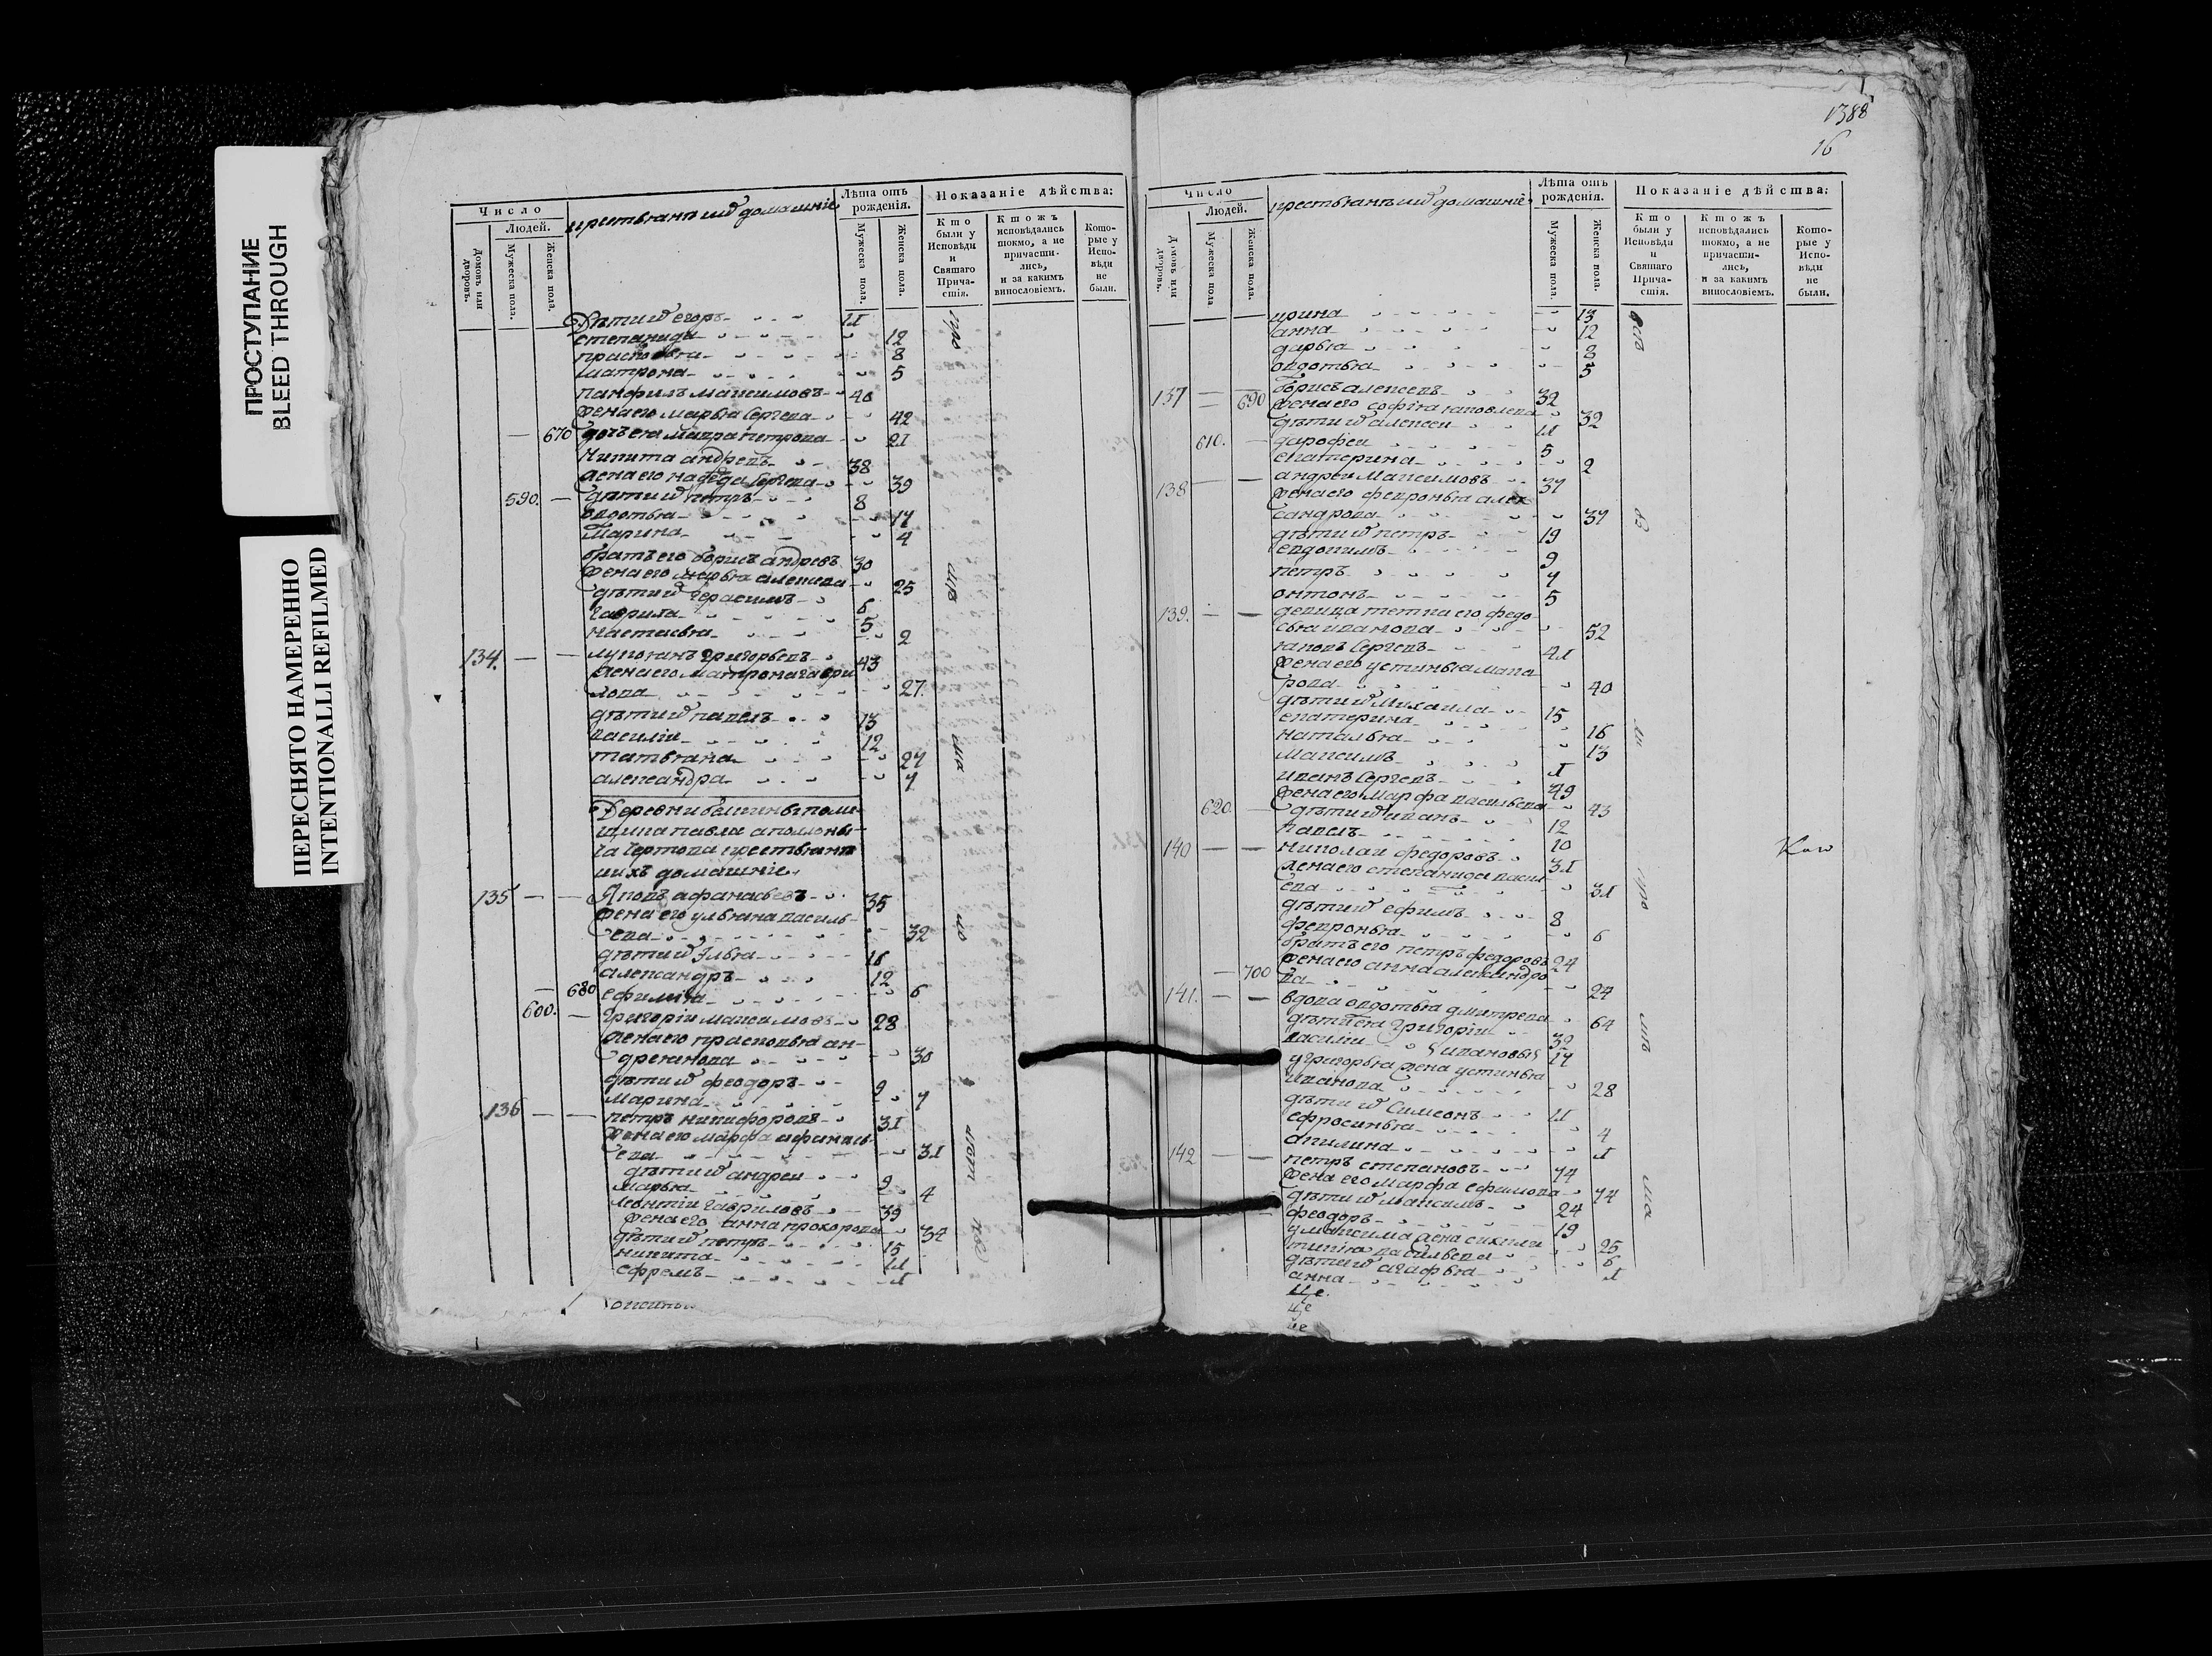 ПРОСТУПАНИЕ
BLEED THROUGH
ПЕРЕСНЯТО НАМЕРЕННО
INTENTIONALLI REFILMED
Число
Людей.
Домовъ или дворовъ.
Мужеска пола.
Женска пола.
крестьянъ ихъ домашніе
Лѣта отъ рожденія.
Мужеска пола.
Женска пола.
Показаніе дѣйства:
Кто были у Исповѣди и Святаго Причастія.
Ктожъ исповѣдались токмо, а не причастились, и за какимъ винословіемъ.
Которые у Исповѣди не были.
Дѣти их егоръ 11
степанида 12
прасковья 8
матрона 5
панфилъ максимовъ 40
жена его марья сергева 42
670 дочь ея мавра петрова 21
никита андревъ 38
жена его сергева 39
590. дѣти их петръ 8
овдотья 17
марина 4
братъ его борисъ андревъ 30
жена его марья алексева 25
дѣти их герасимъ 6
гаврила 5
настасья 2
134. лукоянъ григорьевъ 43
жена его матрона гаври
лова 27
дѣти их павелъ 13
василіи 12
татьяна 27
александра 7
Деревни поме
щика павла аполоны
ча чертова крестьяня
ихъ домашніе
135 Яковъ афанасьевъ 35
жена его ульяна василь
ева 32
дѣти их Илья 16
александръ 12
680 ефимія 6
600. григоріи максимовъ 28
жена его прасковья ан
дреянова 30
дѣти их феодоръ 9
марина 7
136 петръ никифоровъ 31
жена его марфа афанась
ева 31
дѣти их андреи 9
марья 4
леонтіи гавриловъ 39
жена его анна прохорова 34
дѣти их петръ 15
никита 11
ефремъ 1
1388
16
Число
Людей.
Домовъ или дворовъ.
Мужеска пола
Женска пола.
крестьянъ их домашніе
Лѣта отъ рожденія.
Мужеска пола.
Женска пола.
Показаніе дѣйства:
Кто были у Исповѣди и Святаго Причастія.
Ктожъ исповѣдались токмо, а не причастились, и за какимъ винословіемъ.
Которые у Исповѣди не были.
ирина 13
анна 12
дарья 8
овдотья 5
137 борисъ алексевъ 32
690 жена его софія яковлева 32
дѣти их алексеи 11
610. дарофеи 5
екатерина 2
138 андреи максимовъ 37
жена его февронья алек
сандрова 37
дѣти их петръ 19
евдокимъ 9
петръ 7
онтонъ 5
139. девица тетка его федо
сья иванова 52
яковъ сергевъ 41
жена его устинья мака
рова 40
дѣти их михаила 15
екатерина 16
наталья 13
максимъ 1
иванъ сергевъ 49
жена его марфа васильева 43
620. дѣти их иванъ 12
павелъ 10
140 николаи федоровъ 31
жена его степанида васил
ева 31
дѣти их ефимъ 8
февронья 6
братъ его петръ федоровъ 24
700 жена его анна александро
ва 24
141. вдова овдотья дмитрева 64
дѣти ея григоріи 32
василіи ивановы 17
у григорья жена устинья
иванова 28
дѣти их симеонъ 11
ефросинья 4
акилина 1
142 петръ степановъ 74
жена его марфа ефимова 74
дѣти их максимъ 24
феодоръ 19
у максима жена
васильева 25
дѣти их агафья 6
анна 1
це